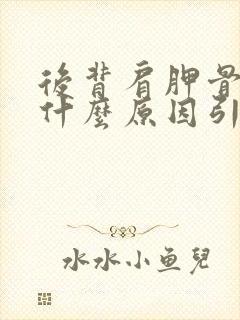 後背肩胛骨
什麼原因引
水水小鱼兒